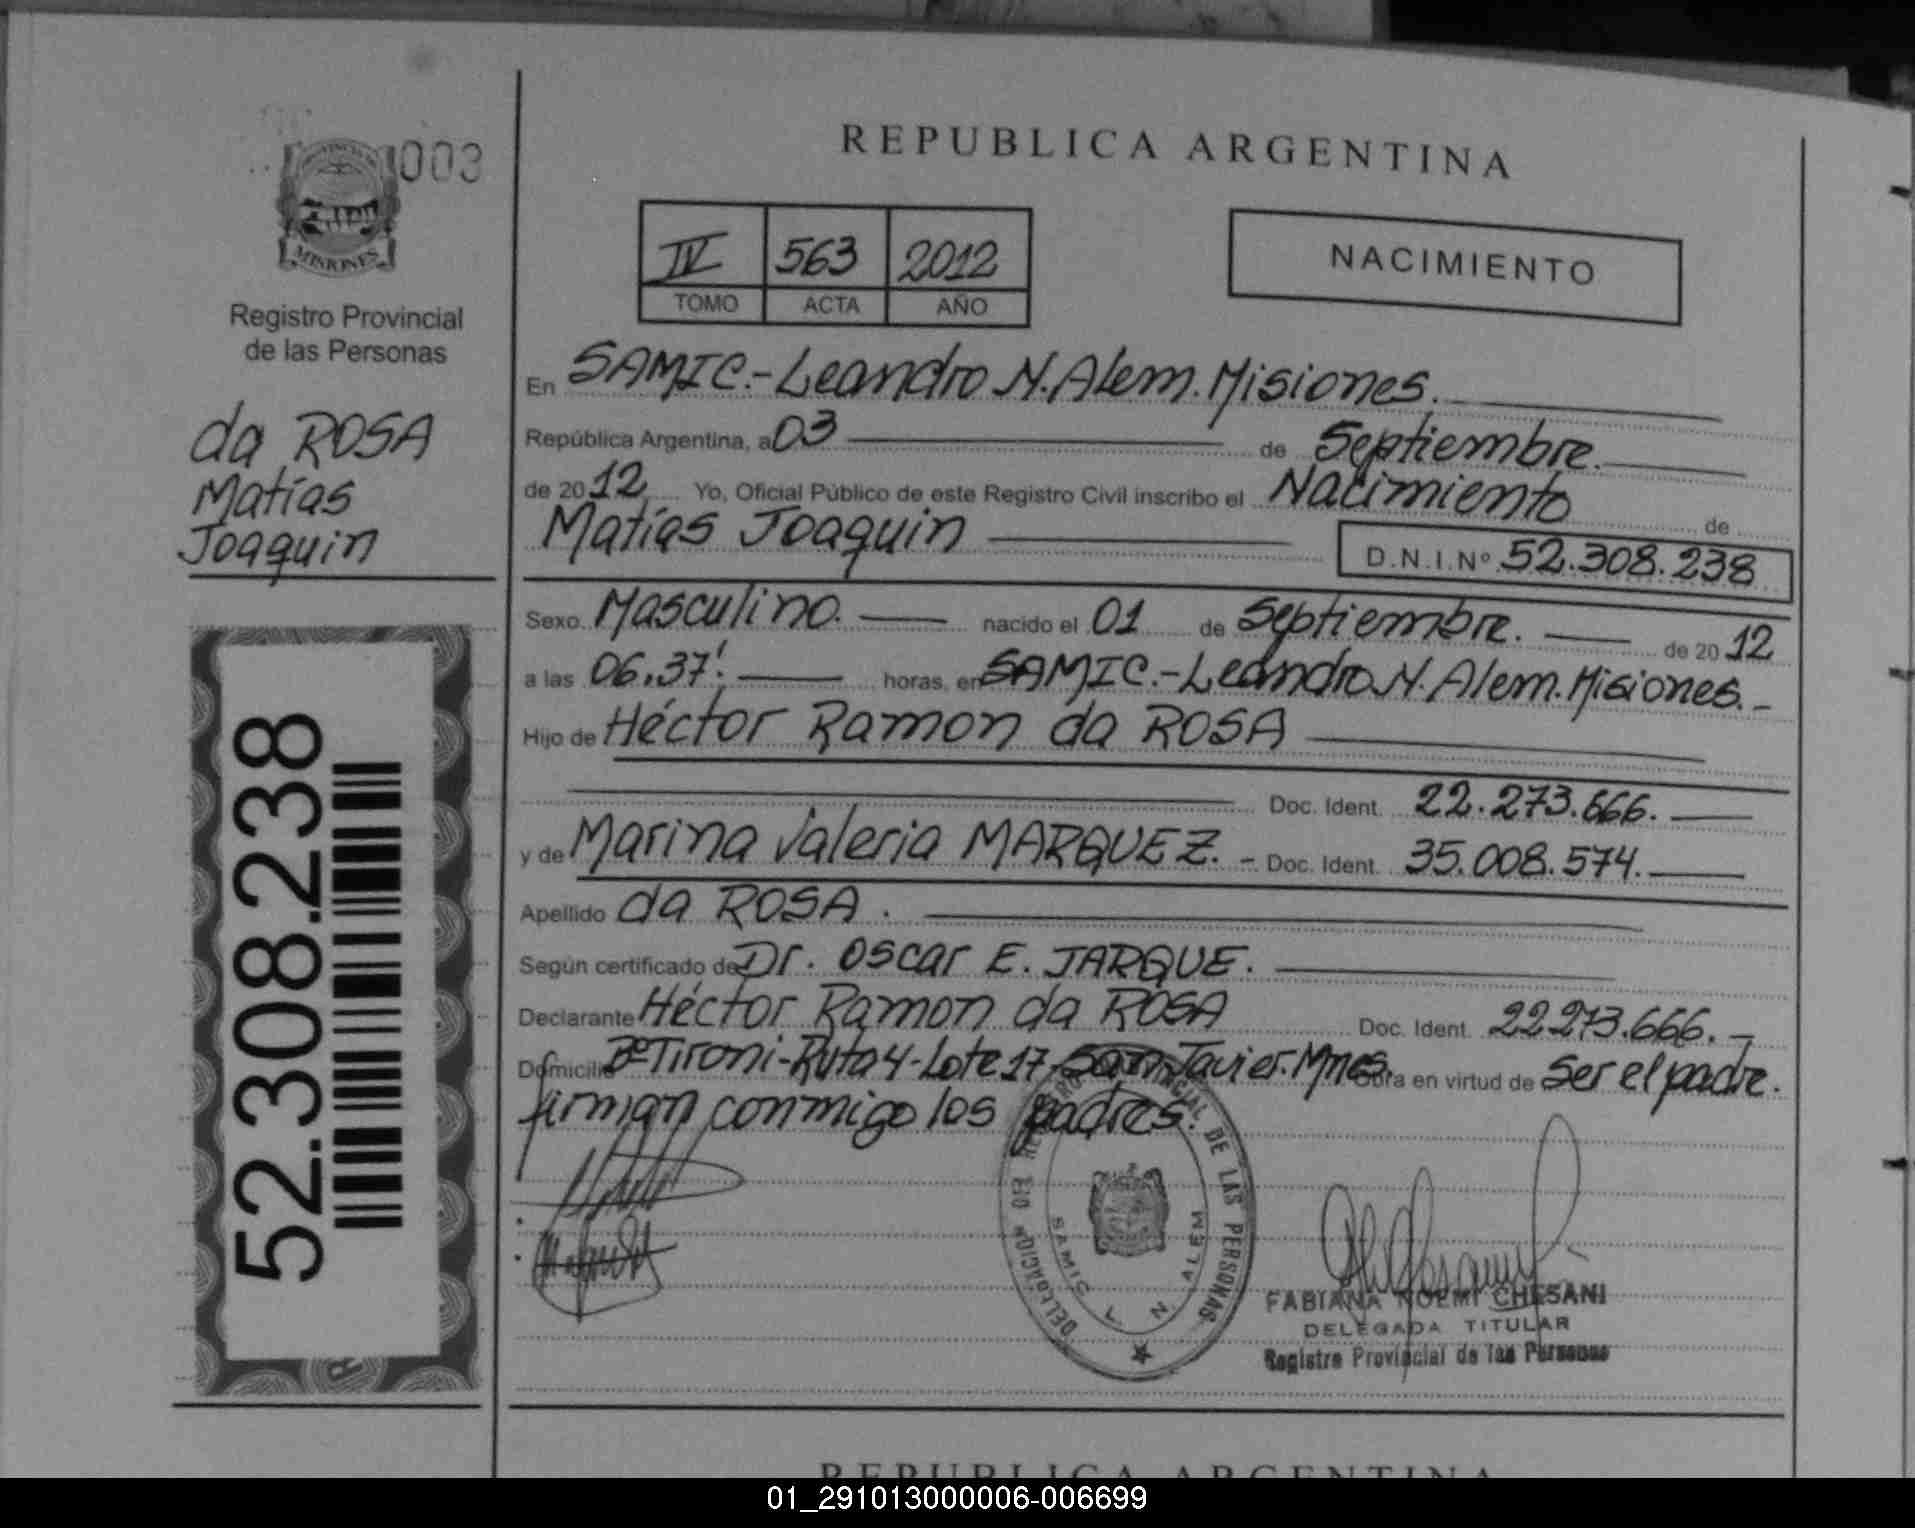 003
PROVINCIA DE
MISIONES
Registro Provincial
de las Personas
da ROSA
Matías
Joaquin
52.308.238
REPUBLICA ARGENTINA
IV 563 2012
TOMO ACTA AÑO
NACIMIENTO
En SAMIC.-Leandro N. Alem. Misiones.
República Argentina, a 03 de Septiembre.
de 2012 Yo, Oficial Público de este Registro Civil inscribo el Nacimiento de
Matías Joaquin
D.N.I.Nº 52.308.238
Sexo Masculino. nacido el 01 de Septiembre. de 2012
a las 06.37'. horas, en SAMIC.-Leandro N. Alem. Misiones.-
Hijo de Héctor Ramon da ROSA
Doc. Ident. 22.273.666.
y de Marina Valeria MARQUEZ. - Doc. Ident. 35.008.574.
Apellido da ROSA.
Según certificado de Dr. Oscar E. JARQUE.
Declarante Héctor Ramon da ROSA Doc. Ident. 22.273.666.-
Domicilio Bº Tironi-Ruta 4-Lote 17-San Javier. Mnes. Obra en virtud de ser el padre.
firman conmigo los padres.
DE LAS PERSONAS
DELEGACION
SAMIC L. N. ALEM
FABIANA NOEMI CHESANI
DELEGADA TITULAR
Registro Provincial de las Personas
REPUBLICA ARGENTINA
01_291013000006-006699